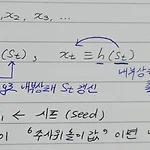 x₂, x₃, ...
(Sₜ), xₜ ≡ h(Sₜ)
내부상태 Sₜ 갱신 내부상
1 ← 시드 (seed)
이 "주사위놀이값" 이면